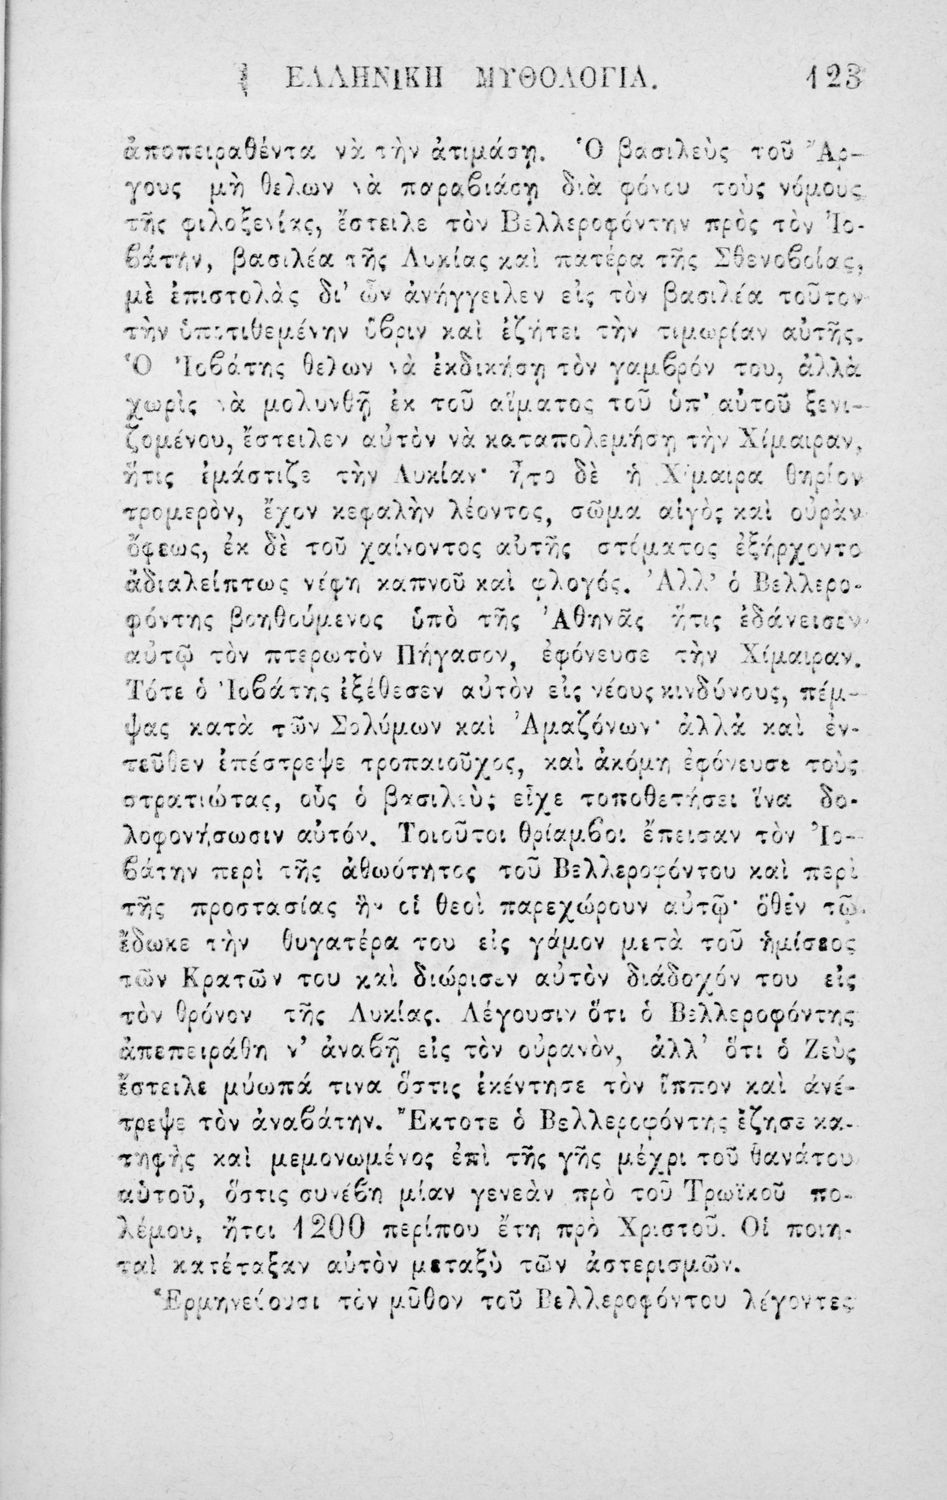 ΕΛΛΗΝΙΚΗ ΜΥΘΟΛΟΓΙΑ. 123
ἀποπειραθέντα νὰ τὴν ἀτιμάσῃ. Ὁ βασιλεὺς τοῦ Ἄρ-
γους μὴ θέλων νὰ παραβιάσῃ διὰ φόνου τοὺς νόμους
τῆς φιλοξενίας, ἔστειλε τὸν Βελλεροφόντην πρὸς τὸν Ἰο-
βάτην, βασιλέα τῆς Λυκίας καὶ πατέρα τῆς Σθενοβοίας,
μὲ ἐπιστολὰς δι' ὧν ἀνήγγειλεν εἰς τὸν βασιλέα τοῦτον
τὴν ὑποτιθεμένην ὕβριν καὶ ἐζήτει τὴν τιμωρίαν αὐτῆς.
Ὁ Ἰοβάτης θέλων νὰ ἐκδικήσῃ τὸν γαμβρόν του, ἀλλὰ
χωρὶς νὰ μολυνθῇ ἐκ τοῦ αἵματος τοῦ ὑπ' αὐτοῦ ξενι-
ζομένου, ἔστειλεν αὐτὸν νὰ καταπολεμήσῃ τὴν Χίμαιραν,
ἥτις ἐμάστιζε τὴν Λυκίαν· ἦτο δὲ ἡ Χίμαιρα θηρίον
τρομερὸν, ἔχον κεφαλὴν λέοντος, σῶμα αἰγὸς καὶ οὐρὰν
ὄφεως, ἐκ δὲ τοῦ χαίνοντος αὐτῆς στόματος ἐξήρχοντο
ἀδιαλείπτως νέφη καπνοῦ καὶ φλογός. Ἀλλ' ὁ Βελλερο-
φόντης βοηθούμενος ὑπὸ τῆς Ἀθηνᾶς ἥτις ἐδάνεισεν
αὐτῷ τὸν πτερωτὸν Πήγασον, ἐφόνευσε τὴν Χίμαιραν.
Τότε ὁ Ἰοβάτης ἐξέθεσεν αὐτὸν εἰς νέους κινδύνους, πέμ-
ψας κατὰ τῶν Σολύμων καὶ Ἀμαζόνων· ἀλλὰ καὶ ἐν-
τεῦθεν ἐπέστρεψε τροπαιοῦχος, καὶ ἀκόμη ἐφόνευσε τοὺς
στρατιώτας, οὓς ὁ βασιλεὺς εἶχε τοποθετήσει ἵνα δο-
λοφονήσωσιν αὐτόν. Τοιοῦτοι θρίαμβοι ἔπεισαν τὸν Ἰο-
βάτην περὶ τῆς ἀθωότητος τοῦ Βελλεροφόντου καὶ περὶ
τῆς προστασίας ἣν οἱ θεοὶ παρεχώρουν αὐτῷ· ὅθεν τῷ
ἔδωκε τὴν θυγατέρα του εἰς γάμον μετὰ τοῦ ἡμίσεος
τῶν Κρατῶν του καὶ διώρισεν αὐτὸν διάδοχόν του εἰς
τὸν θρόνον τῆς Λυκίας. Λέγουσιν ὅτι ὁ Βελλεροφόντης
ἀπεπειράθη ν' ἀναβῇ εἰς τὸν οὐρανὸν, ἀλλ' ὅτι ὁ Ζεὺς
ἔστειλε μύωπά τινα ὅστις ἐκέντησε τὸν ἵππον καὶ ἀνέ-
τρεψε τὸν ἀναβάτην. Ἔκτοτε ὁ Βελλεροφόντης ἔζησε κα-
τηφὴς καὶ μεμονωμένος ἐπὶ τῆς γῆς μέχρι τοῦ θανάτου
αὐτοῦ, ὅστις συνέβη μίαν γενεὰν πρὸ τοῦ Τρωϊκοῦ πο-
λέμου, ἤτοι 1200 περίπου ἔτη πρὸ Χριστοῦ. Οἱ ποιη-
ταὶ κατέταξαν αὐτὸν μεταξὺ τῶν ἀστερισμῶν.
Ἑρμηνεύουσι τὸν μῦθον τοῦ Βελλεροφόντου λέγοντες